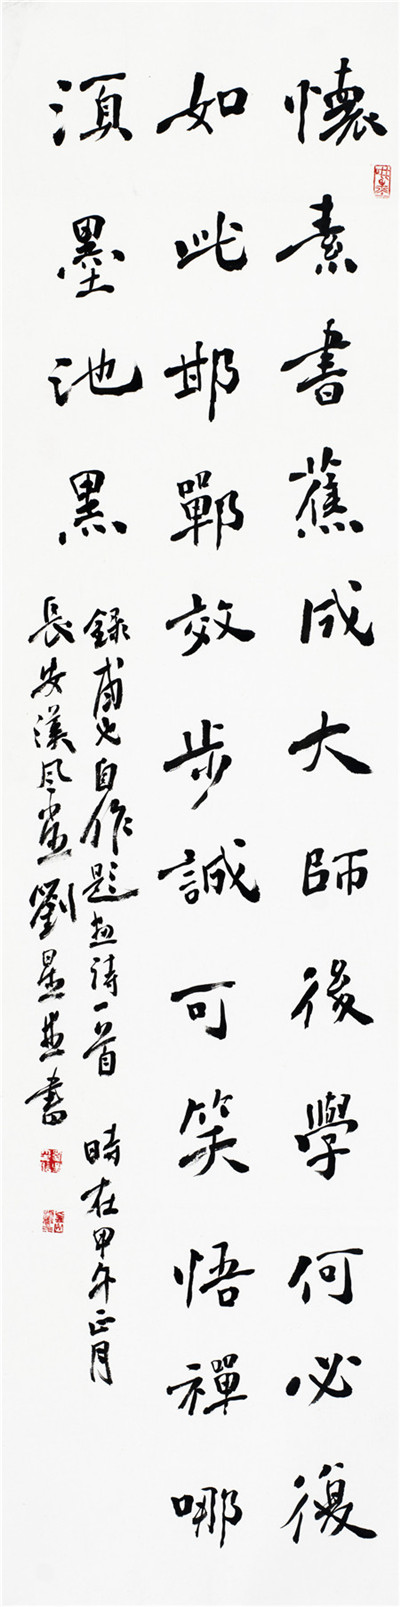 懷素書蕉成大師後學何必復
如此邯鄲效步誠可笑悟禪哪
須墨池黑
錄甫也自作題畫詩一首 時在甲午正月
長安漢風堂劉星
書